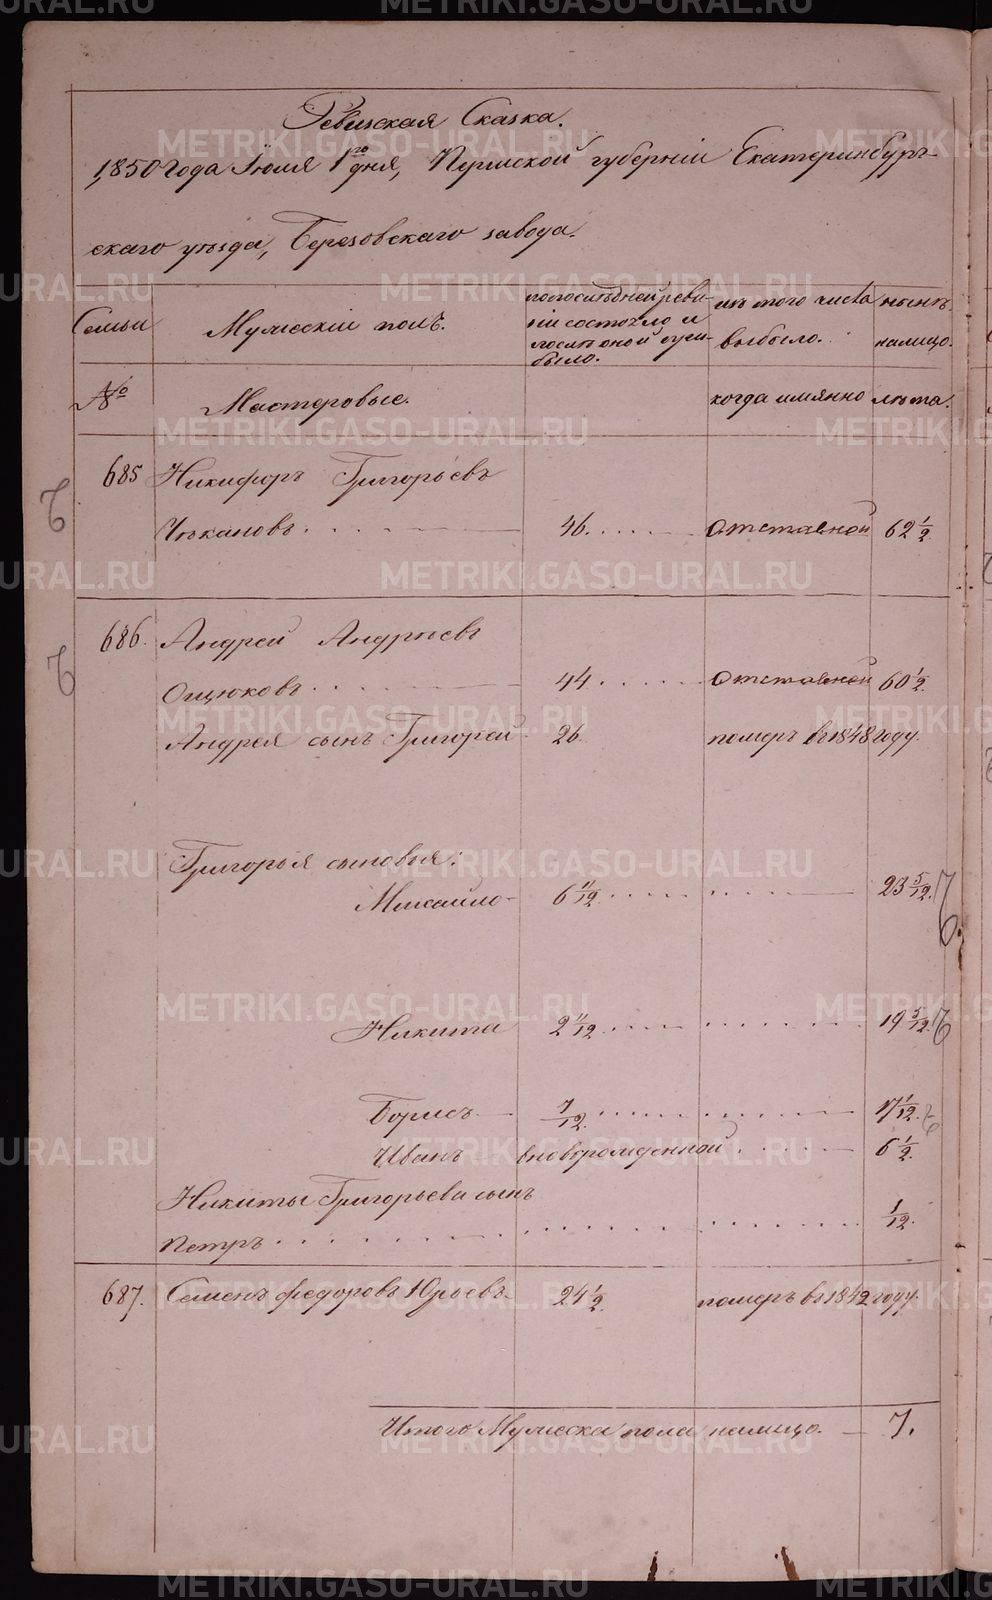 Ревизская Сказка.
1850 года Іюля 1го дня, Пермской губерніи Екатеринбург-
скаго уѣзда, Березовскаго завода.
Семьи
Мужескій полъ.
по последней реви-
зіи состояло и
после оной при-
было.
изъ того числа
выбыло.
нынѣ
налицо.
№
Мастеровые.
когда имянно
лѣта.
685 Никифоръ Григорьевъ
Чекановъ 46. отставной 62 1/2
686. Андрей Андреевъ
44 отставной 60 1/2
Андрея сынъ Григорей 26 померъ въ 1848 году.
Григорья сыновья:
Михайло 6 11/12 23 5/12.
Никита 2 11/12 19 5/12.
Борисъ 7/12. 17 1/12.
Иванъ вноворожденной 6 1/2
Никиты Григорьева сынъ
Петръ 1/12.
687. Семенъ Федоровъ Юрьевъ 24 1/2 померъ въ 1842 году.
Итого Мужеска пола налицо. 7.
METRIKI.GASO-URAL.RU